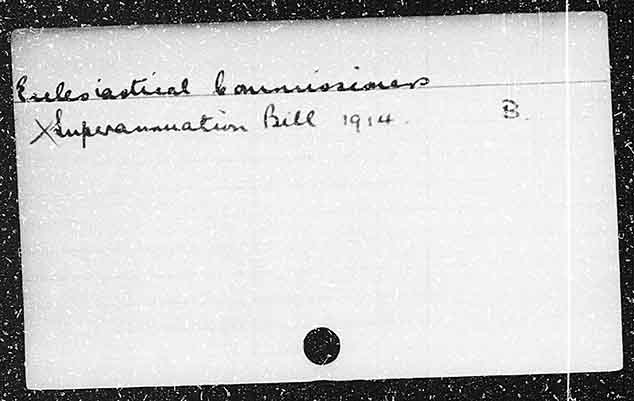 Ecclesiastical Commissioners
X Superannuation Bill 1914. B.